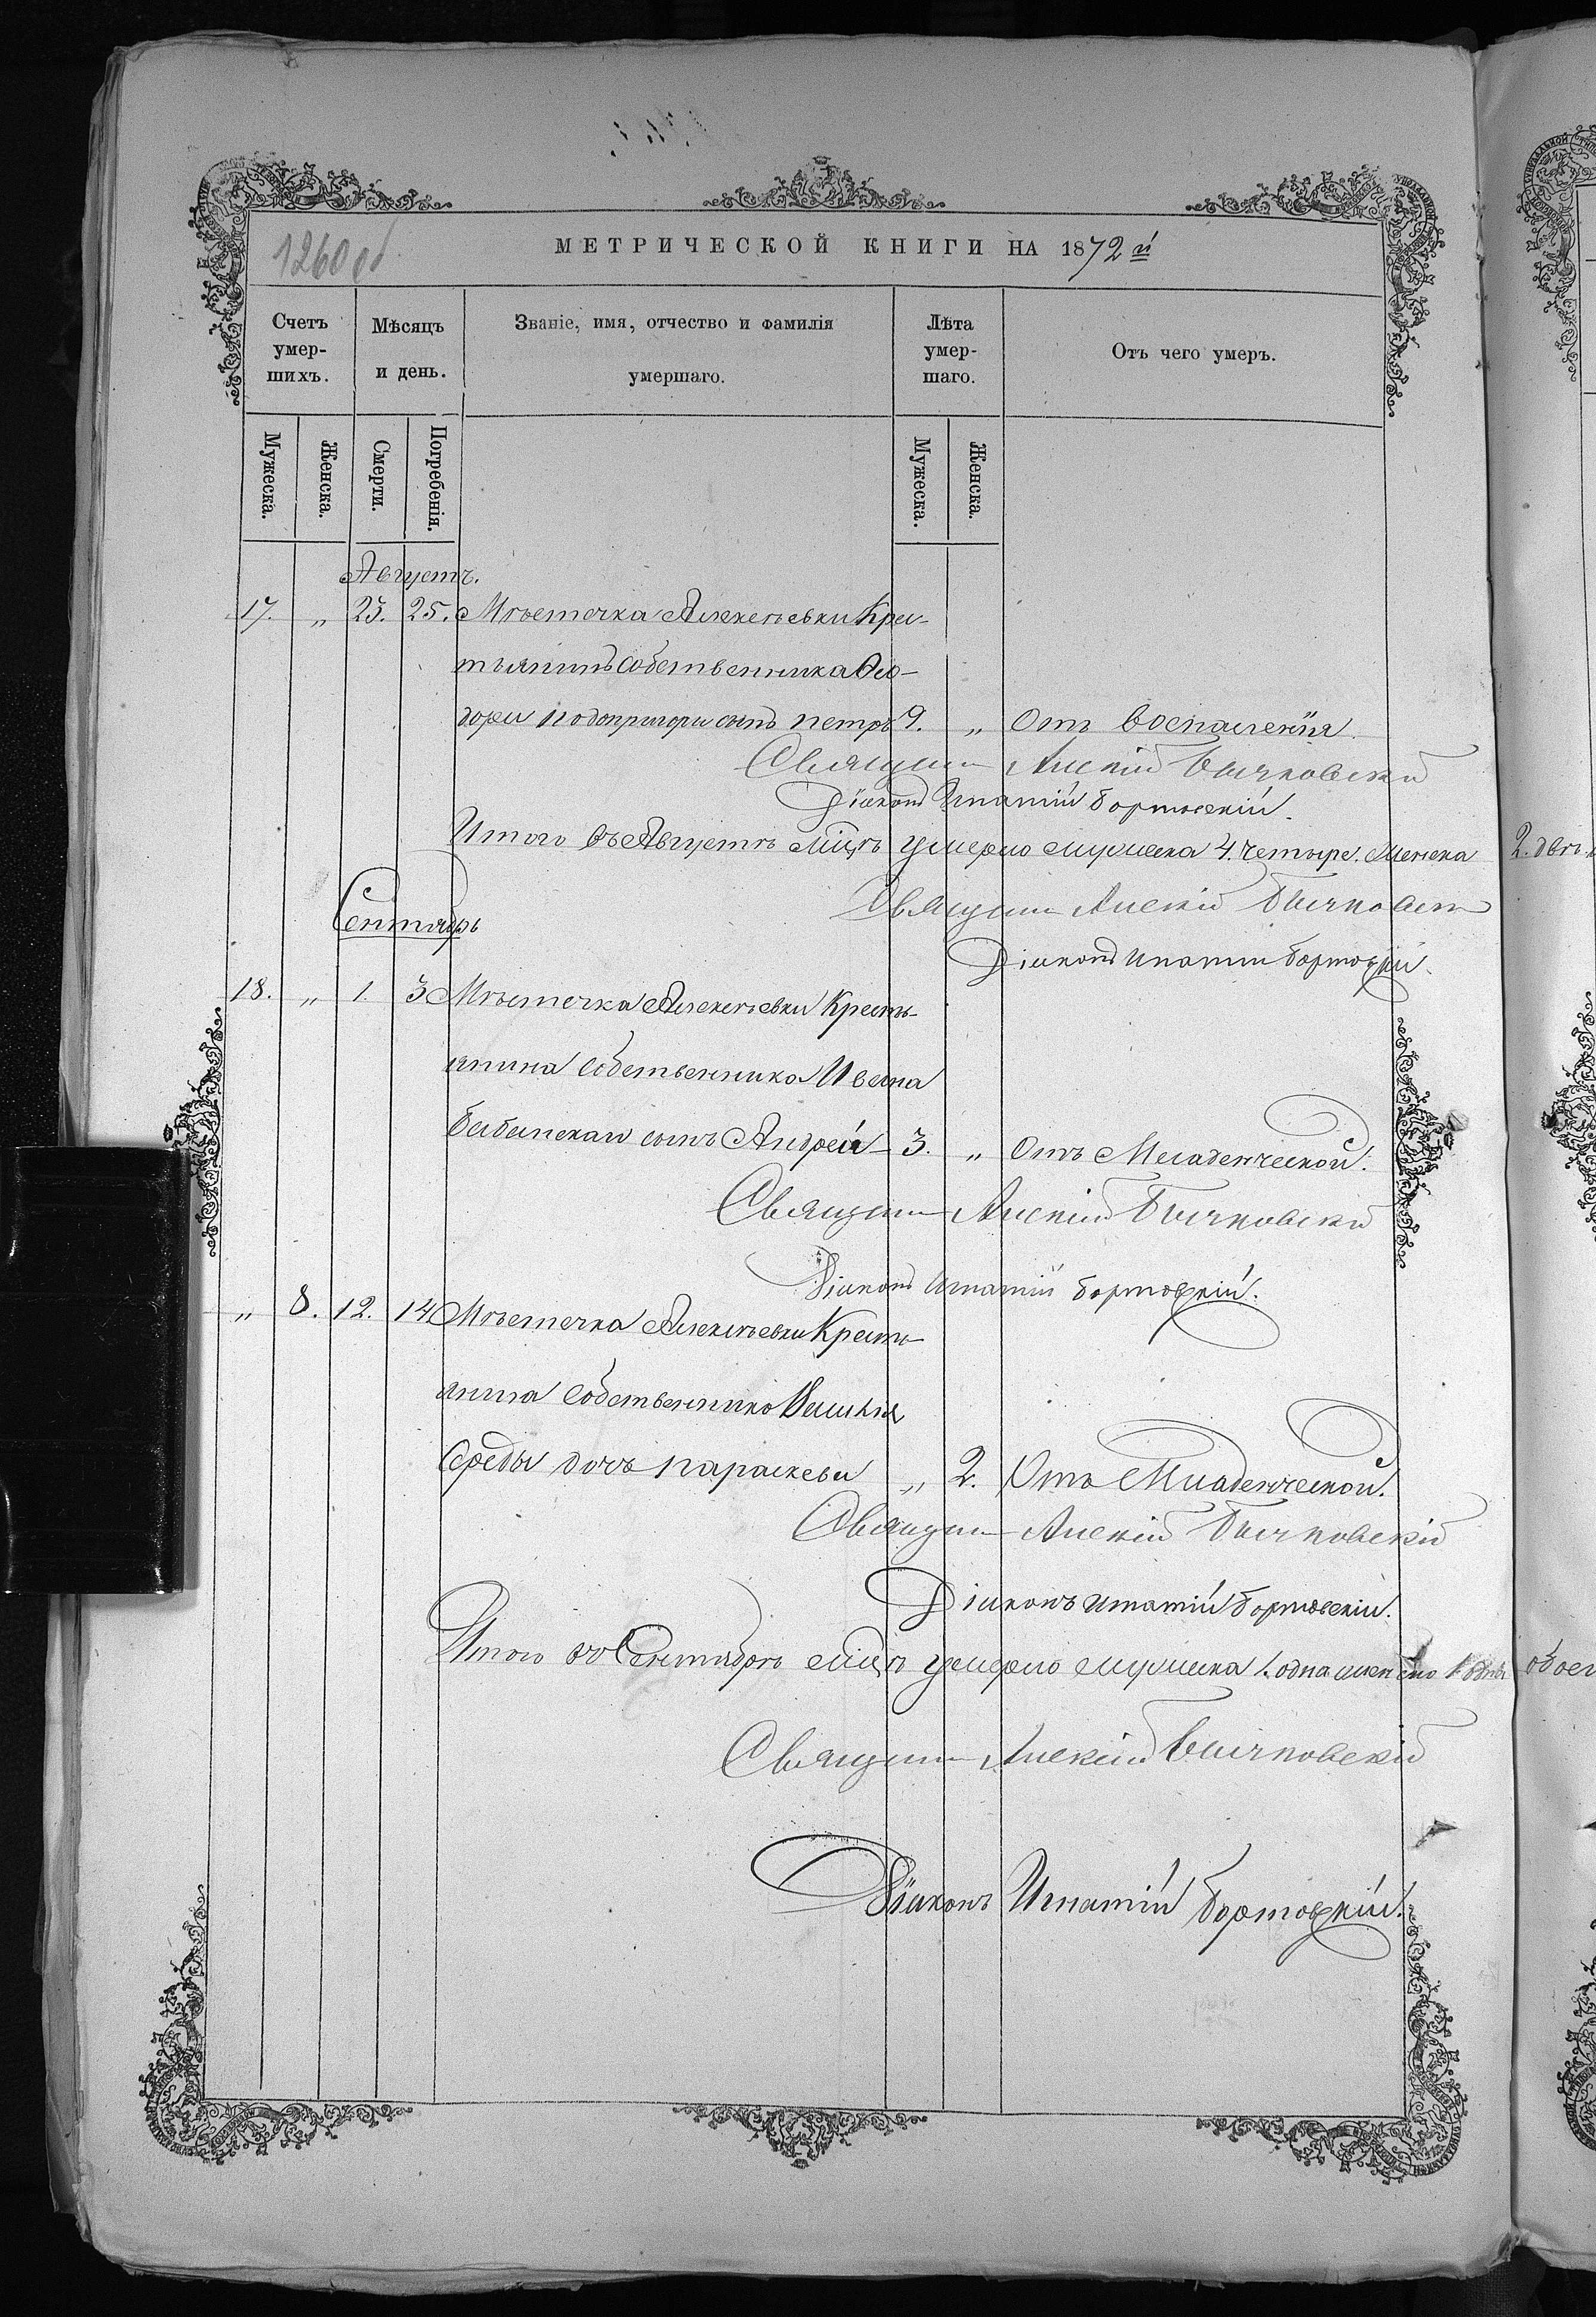 1260 об
МЕТРИЧЕСКОЙ КНИГИ НА 1872 й
Счетъ умер-шихъ.
Мѣсяцъ и день.
Званіе, имя, отчество и фамилія умершаго.
Лѣта умер-шаго.
Отъ чего умеръ.
Мужеска.
Женска.
Смерти.
Погребенія.
Мужеска.
Женска.
Августъ.
17. „ 23. 25. Мѣстечка Алексѣевки Крес-
тьянинъ собственника Ѳео-
дора Подопригори сынъ Петръ 9. „ Отъ воспаленія.
Священн Алексій Бычковскій
Діаконъ Игнатій Бортовскій.
Итого въ Августѣ м͠цѣ умерло мужеска 4. четыре. Женска 2. двѣ
Сентябрь
Священн Алексій Бычковск
Діаконъ Игнатій Бортовскій.
18. „ 1. 3 Мѣстечка Алексѣевки Кресть-
янина собственника Ивана
Бабанскаго сынъ Андрей 3. „ Отъ Младенческой.
Священн Алексій Бычковскій
Діаконъ Игнатій Бортовскій.
„ 8. 12. 14 Мѣстечка Алексѣевки Кресть-
янина собственника
Середы дочь Параскева „ 2. Отъ Младенческой.
Священн Алексій Бычковскій
Діаконъ Игнатій Бортовскій.
Итого въ Сентябрѣ м͠цѣ умерло мужеска 1. одна женска 1 одна обоег
Священн Алексій Бычковскій
Діаконъ Игнатій Бортовскій.